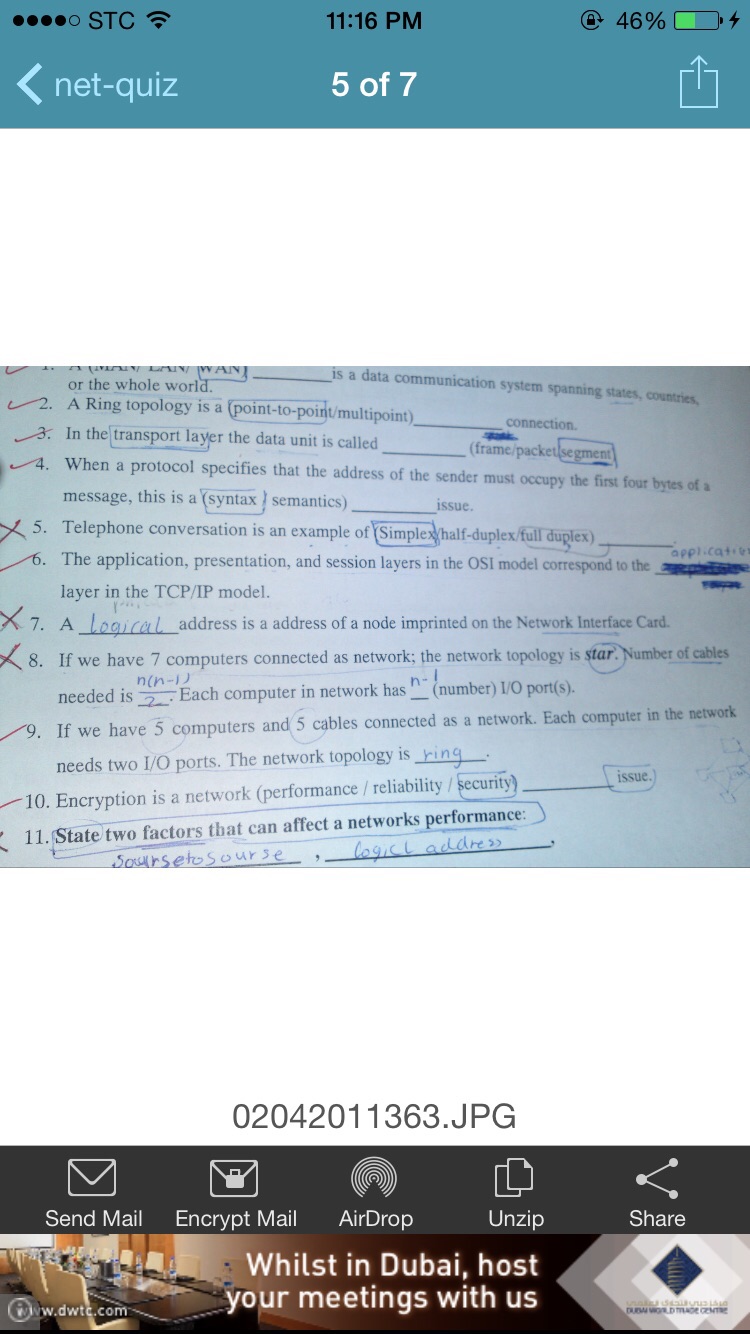 STC 11:16 PM 46%
net-quiz 5 of 7
1. A (MAN/ LAN/ WAN) ________ is a data communication system spanning states, countries,
or the whole world.
2. A Ring topology is a (point-to-point/multipoint)________ connection.
3. In the transport layer the data unit is called ________ (frame/packet/segment)
4. When a protocol specifies that the address of the sender must occupy the first four bytes of a
message, this is a (syntax / semantics) ________ issue.
5. Telephone conversation is an example of (Simplex/half-duplex/full duplex) ________.
6. The application, presentation, and session layers in the OSI model correspond to the application
layer in the TCP/IP model.
7. A logical address is a address of a node imprinted on the Network Interface Card.
8. If we have 7 computers connected as network; the network topology is star. Number of cables
needed is n(n-1)/2. Each computer in network has n-1 (number) I/O port(s).
9. If we have 5 computers and 5 cables connected as a network. Each computer in the network
needs two I/O ports. The network topology is ring.
10. Encryption is a network (performance / reliability / security) ________ issue.
11. State two factors that can affect a networks performance:
soursetosourse , logicl address,
02042011363.JPG
Send Mail Encrypt Mail AirDrop Unzip Share
Whilst in Dubai, host
your meetings with us
www.dwtc.com
DUBAI WORLD TRADE CENTRE